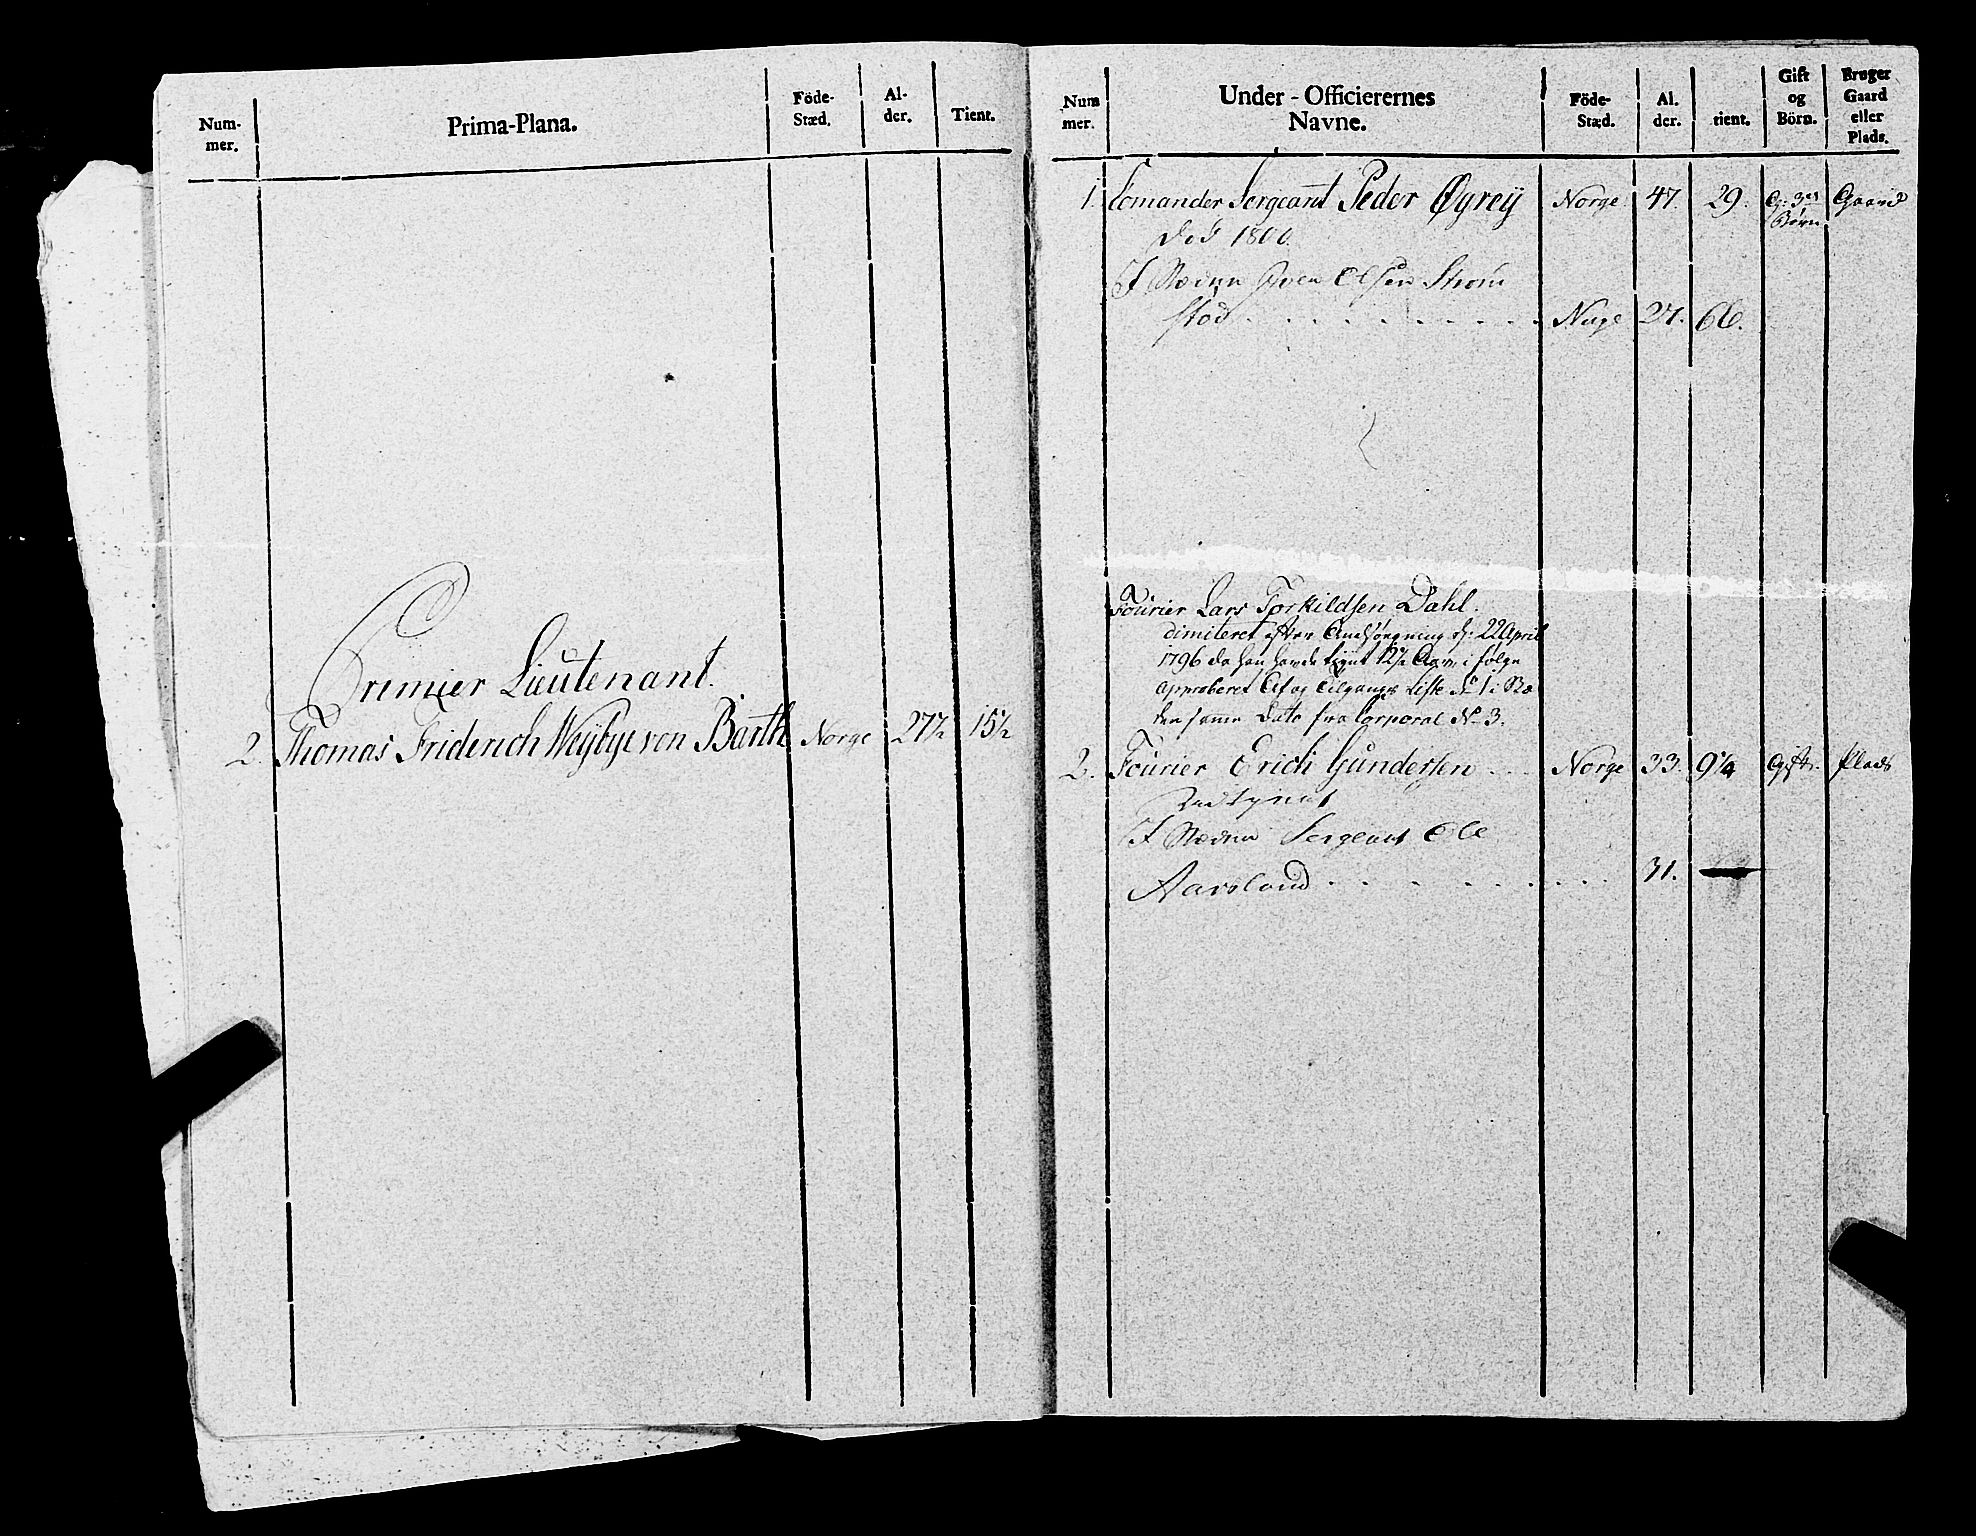 Num-
mer.
Prima-Plana.
Föde-
Stæd.
Al-
der.
Tient.
Premier Lieutenant.
2. Thomas Friderich Weybye von Barth Norge 27½ 15½
Num
mer.
Under-Officierernes
Navne.
Föde-
Stæd.
Al.
der.
tient.
Gift
og
Börn.
Bruger
Gaard
eller
Plads.
1. Comander Sergeant Peder Øyrey Norge 47. 29. G: 3 Gaard
Børn
død 1800.
I Stæden Olsen Strøm
stad Norge 27.
Fourier Lars Torkildsen Dahl.
dimiteret efter Ansøgning d: 22 April
1796 da han havde tient 12½ Aar, i følge
approberet Af og Tilgangs Liste No 1 i
den samme Dato fra Corporal No 3.
2. Fourier Erich Gundersen Norge 33. 9¼ Gift. Plads
Udtient
I Stæden Sergeant Ole
Aarsland 31.